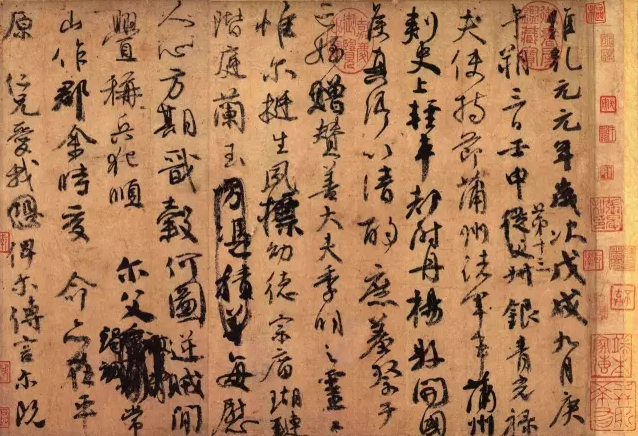 維乾元元年歲次戊戌九月庚
午朔三日壬申第十三從父叔銀青光祿
夫使持節蒲州諸軍事蒲州
刺史上輕車都尉丹楊縣開國
侯真卿以清酌庶羞祭于
亡姪贈贊善大夫季明之靈曰
惟爾挺生夙標幼德宗廟瑚璉
階庭蘭玉方憑積善每慰
人心方期戩穀何圖逆賊閒
釁稱兵犯順爾父竭誠常
山作郡余時受命亦在平
原仁兄愛我恐俾爾傳言爾既